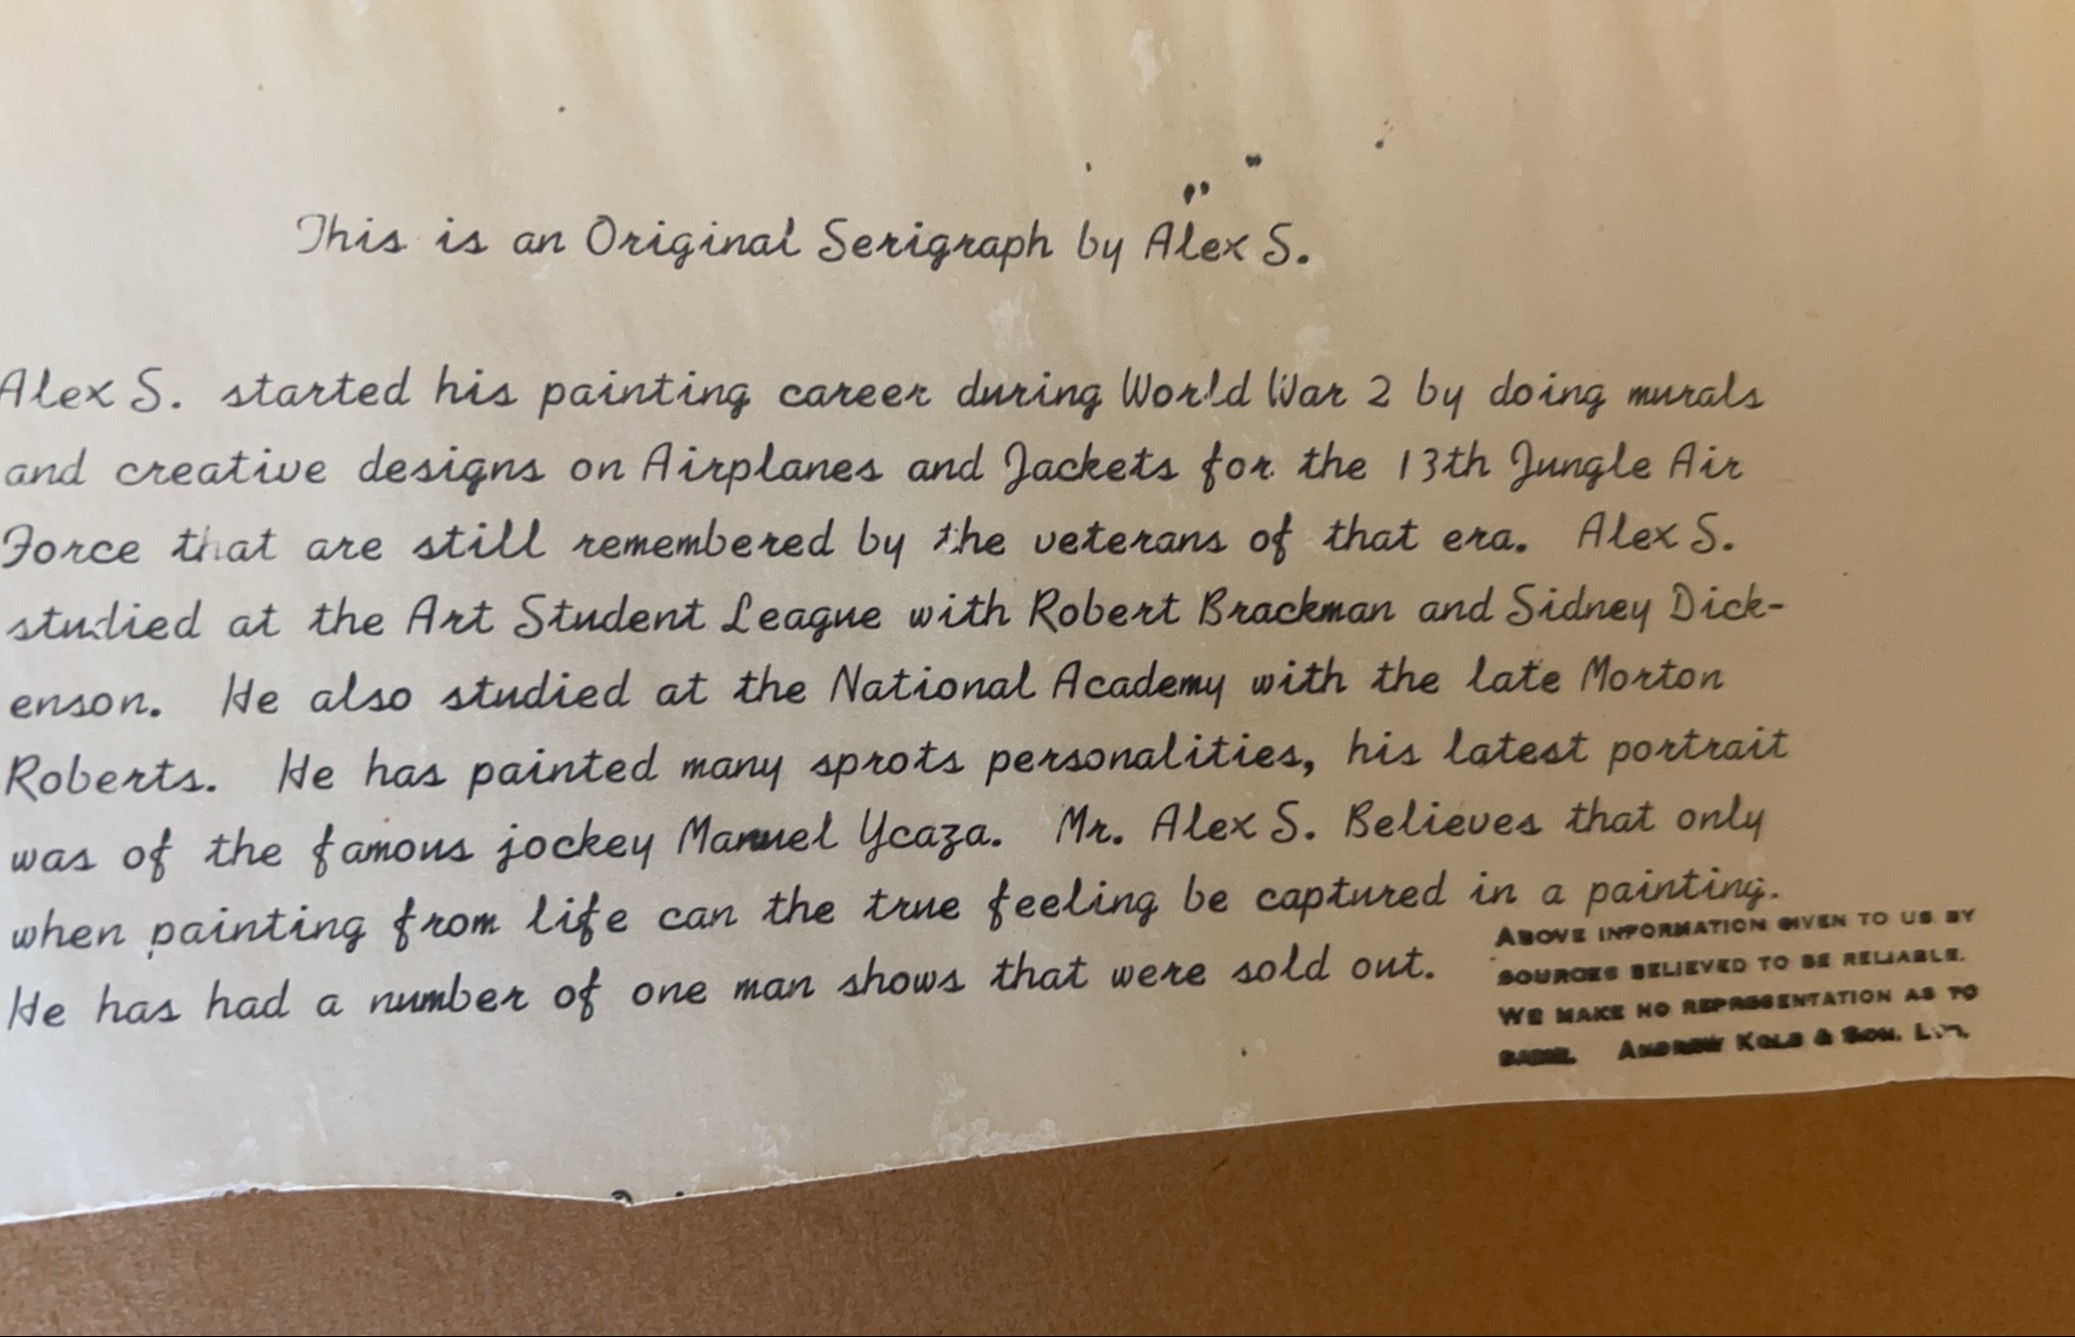 This is an Original Serigraph by Alex S.
Alex S. started his painting career during World War 2 by doing murals
and creative designs on Airplanes and Jackets for the 13th Jungle Air
Force that are still remembered by the veterans of that era. Alex S.
studied at the Art Student League with Robert Brackman and Sidney Dick-
enson. He also studied at the National Academy with the late Morton
Roberts. He has painted many sprots personalities, his latest portrait
was of the famous jockey Manuel Ycaza. Mr. Alex S. Believes that only
when painting from life can the true feeling be captured in a painting.
He has had a number of one man shows that were sold out.
ABOVE INFORMATION GIVEN TO US BY
SOURCES BELIEVED TO BE RELIABLE.
WE MAKE NO REPRESENTATION AS TO
SAME. ANDREW KOLB & SON. LTD.